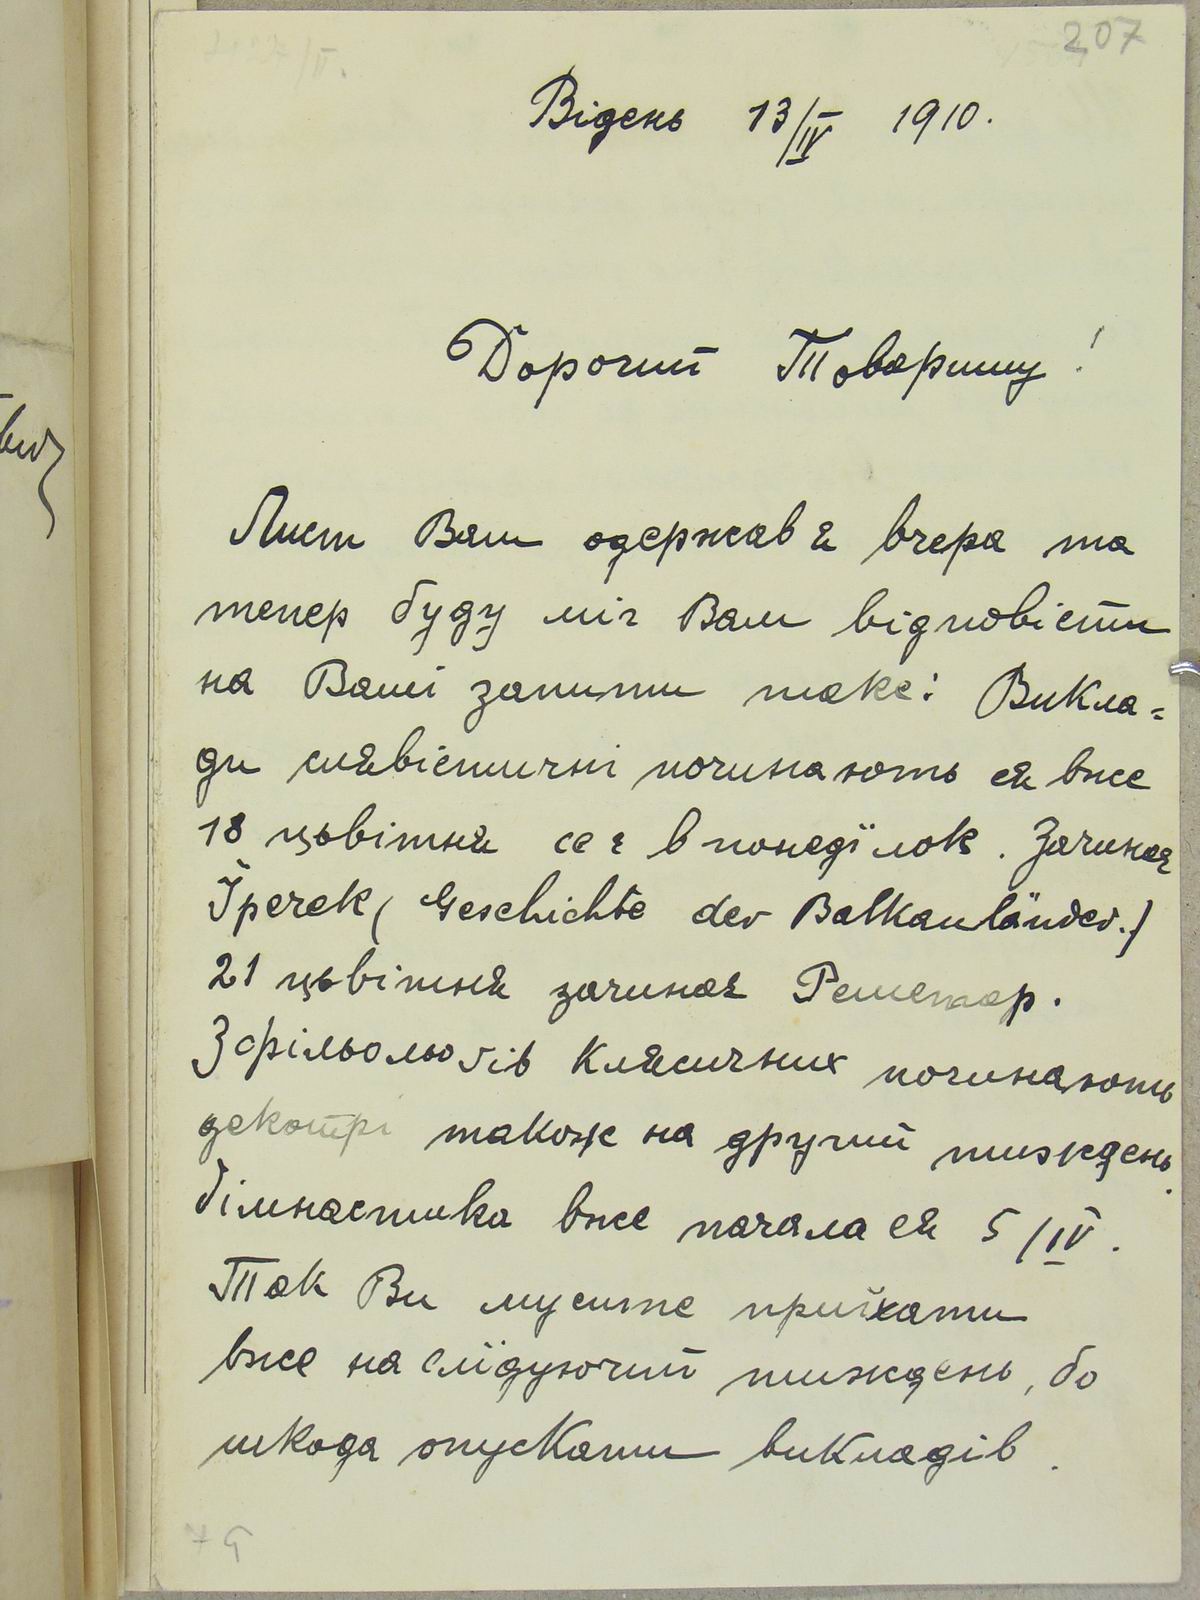 207
Відень 13/IV 1910.
Дорогий Товаришу!
Лист Ваш одержав я вчера та
тепер буду міг Вам відповісти
на Ваші запити таке: Викла=
ди славістичні починають ся вже
18 цьвітня се є в понедїлок. Зачинає
Їречек (Geschichte der Balkanländer.)
21 цьвітня зачинає Решетар.
З фільольоґів клясичних починають
декотрі також на другий тиждень.
Ґімнастика вже почала ся 5/IV.
Так Ви мусите приїхати
вже на слїдуючий тиждень, бо
шкода опускати викладів.